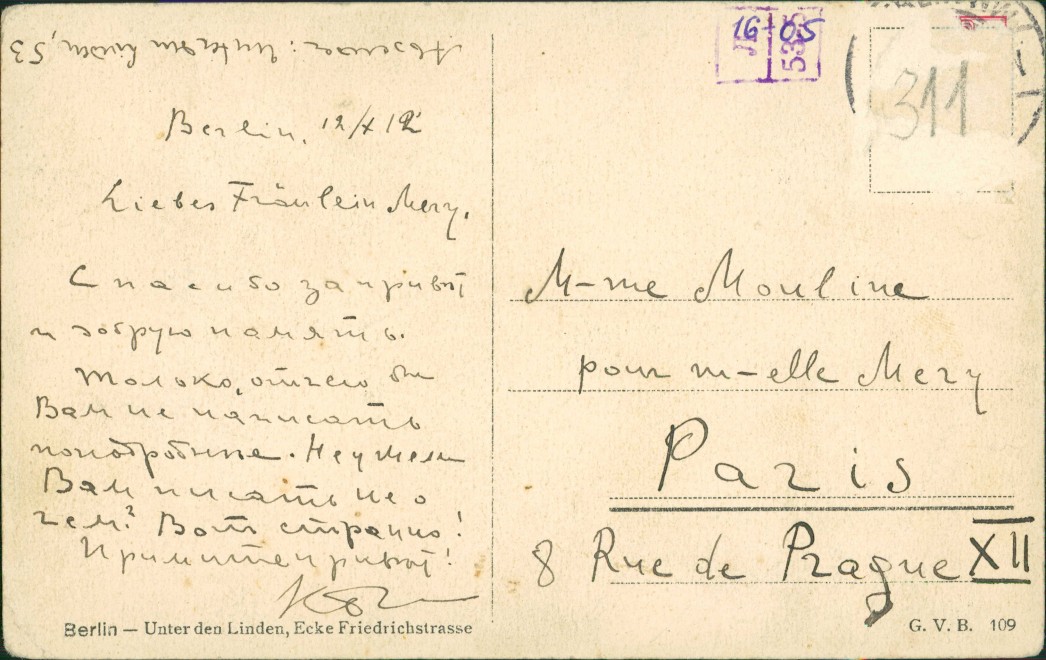 Absender: Unter den Linden, 53
Berlin, 12/X 12
Liebes Fräulein Mery,
Спасибо за привѣт
и добрую память.
Только, отчего бы
Вам не написать
поподробнѣе. Неужели
Вам писать не о
чем? Вотъ странно!
Примите привѣт!
Berlin — Unter den Linden, Ecke Friedrichstrasse
16 05
53
311
M-me Mouline
pour m-elle Mery
Paris
8 Rue de Prague XII
G. V. B. 109